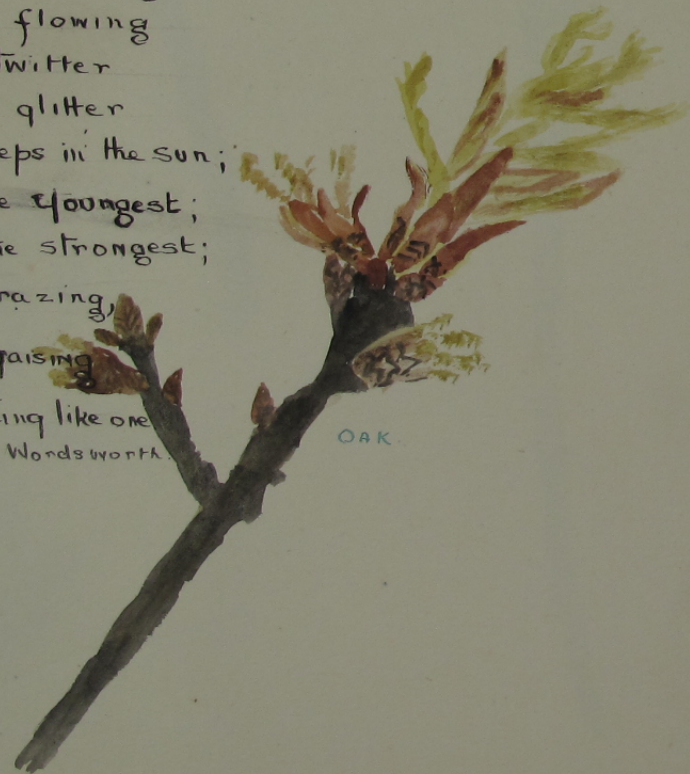 flowing
twitter
glitter
eps in the sun;
e Youngest;
e strongest;
razing,
raising
ing like one
Wordsworth.
OAK.